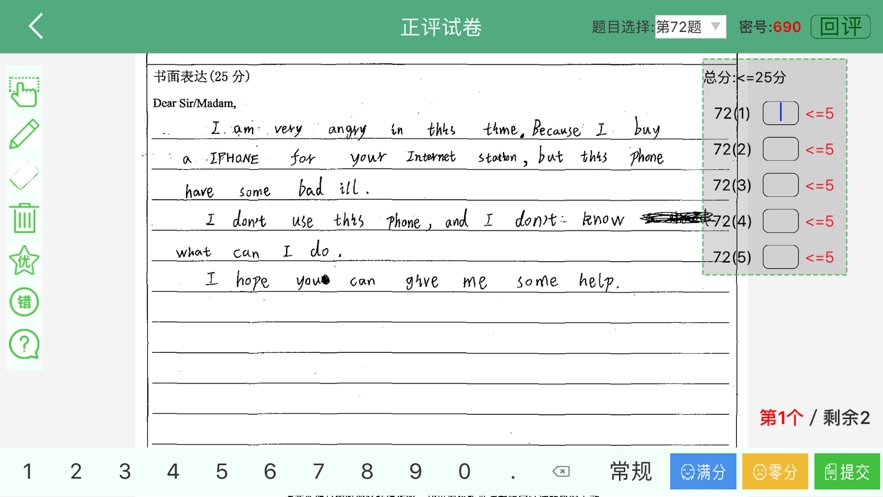 正评试卷
题目选择:第72题 ▼
密号:690
回评
书面表达(25 分)
Dear Sir/Madam,
I am very angry in this time. Because I buy
a IPHONE for your Internet station, but this phone
have some bad ill.
I don't use this phone, and I don't know
what can I do.
I hope you can give me some help.
总分:<=25分
72(1) <=5
72(2) <=5
72(3) <=5
72(4) <=5
72(5) <=5
优
错
?
第1个 / 剩余2
1 2 3 4 5 6 7 8 9 0 .
常规
满分
零分
提交